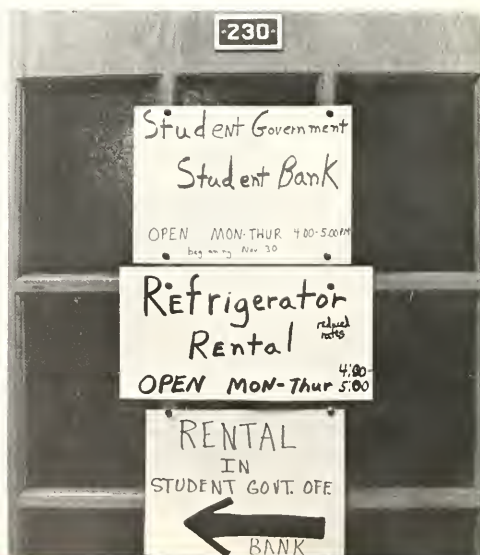 ·230·
Student Government
Student Bank
OPEN MON-THUR 4:00-5:00 PM
beg Nov 30
REfrigerator
REntal
reduced
rates
4:00-
OPEN MON-Thur 5:00
RENTAL
IN
STUDENT GOVT. OFF.
BANK